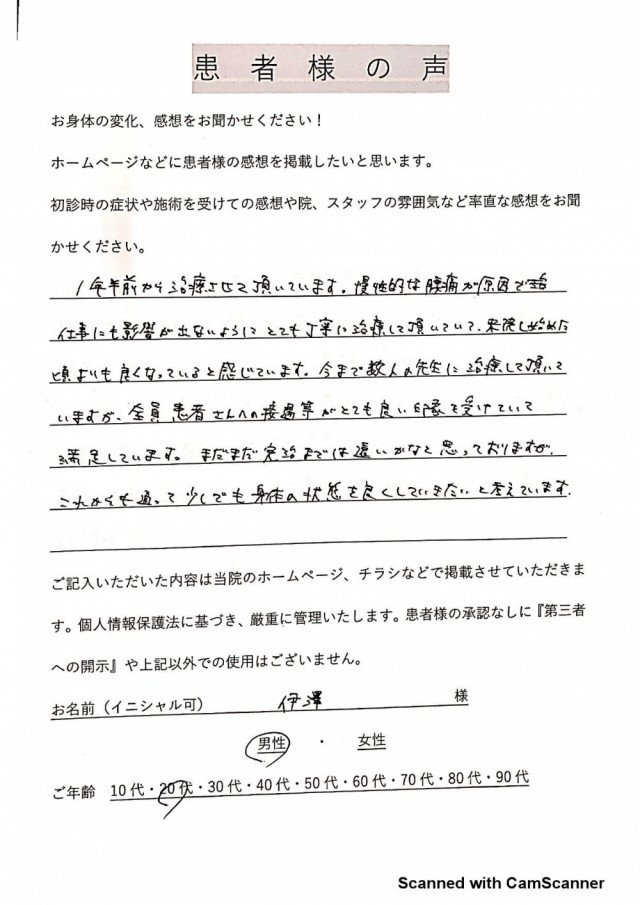 患者様の声
お身体の変化、感想をお聞かせください！
ホームページなどに患者様の感想を掲載したいと思います。
初診時の症状や施術を受けての感想や院、スタッフの雰囲気など率直な感想をお聞
かせください。
1年半前から治療させて頂いています。慢性的な腰痛が原因で
仕事にも影響が出ないようにとても丁寧に治療して頂いていて、来院し始めた
頃よりも良くなっていると感じています。今まで数人の先生に治療して頂いて
いますが、全員患者さんへの接遇等がとても良い印象を受けていて
満足しています。まだまだ完治までは遠いかなと思っておりますが、
これからも通って少しでも身体の状態を良くしていきたいと考えています。
ご記入いただいた内容は当院のホームページ、チラシなどで掲載させていただきま
す。個人情報保護法に基づき、厳重に管理いたします。患者様の承認なしに『第三者
への開示』や上記以外での使用はございません。
お名前（イニシャル可） 伊澤 様
男性 ・ 女性
ご年齢 10代・20代・30代・40代・50代・60代・70代・80代・90代
Scanned with CamScanner